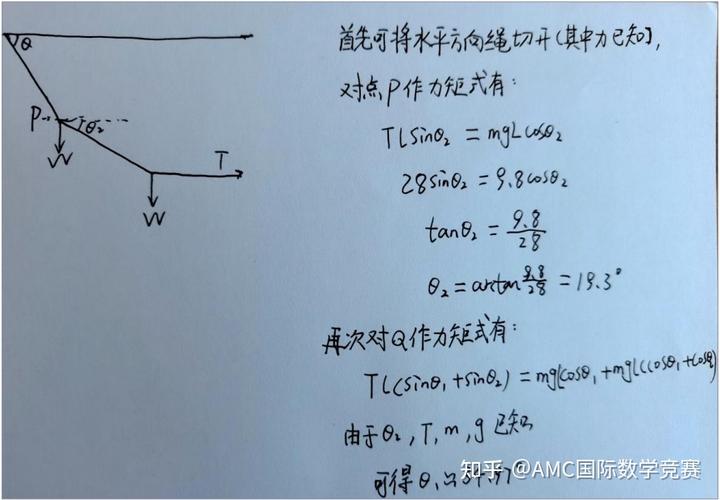 Q
P
θ₂
T
W
W
首先可将水平方向绳切开(其中力已知),
对点P作力矩式有:
TLsinθ₂ = mgLcosθ₂
28sinθ₂ = 9.8cosθ₂
tanθ₂ = 9.8/28
θ₂ = arctan 9.8/28 = 19.3°
再次对Q作力矩式有:
TL(sinθ₁+sinθ₂) = mgLcosθ₁+mgL(cosθ₁+cosθ₂)
由于θ₂,T,m,g已知
可得θ₁
知乎 @AMC国际数学竞赛